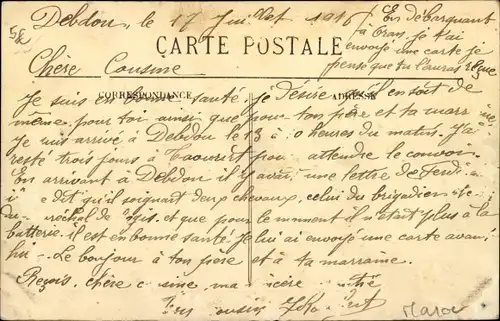 Debdou, le 17 Juillet 1916
En débarquant
à Oran, je t'ai
envoyé une carte je
pense que tu l'auras reçue
CARTE POSTALE
Chère Cousine
CORRESPONDANCE
ADRESSE
Je suis en bonne santé je désire qu'il en soit de
même pour toi ainsi que pour ton père et ta marraine
Je suis arrivé à Debdou le 13 à 10 heures du matin. J'ai
resté trois jours à Taourirt pour attendre le convoi.
En arrivant à Debdou il y avait une lettre de
dit qu'il soignait deux chevaux, celui du brigadier
et que pour le moment il n'était plus à la
batterie. il est en bonne santé. Je lui ai envoyé une carte avant
hier. Le bonjour à ton père et à ta marraine.
Reçois, chère cousine, ma sincère amitié
Ton cousin
Maroc